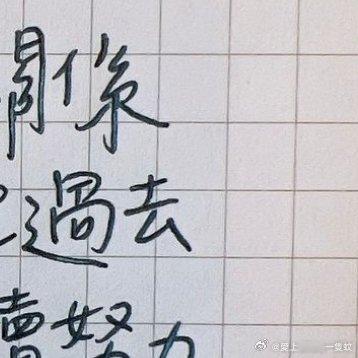 關係
過去
續努力
@愛上 一隻蚊